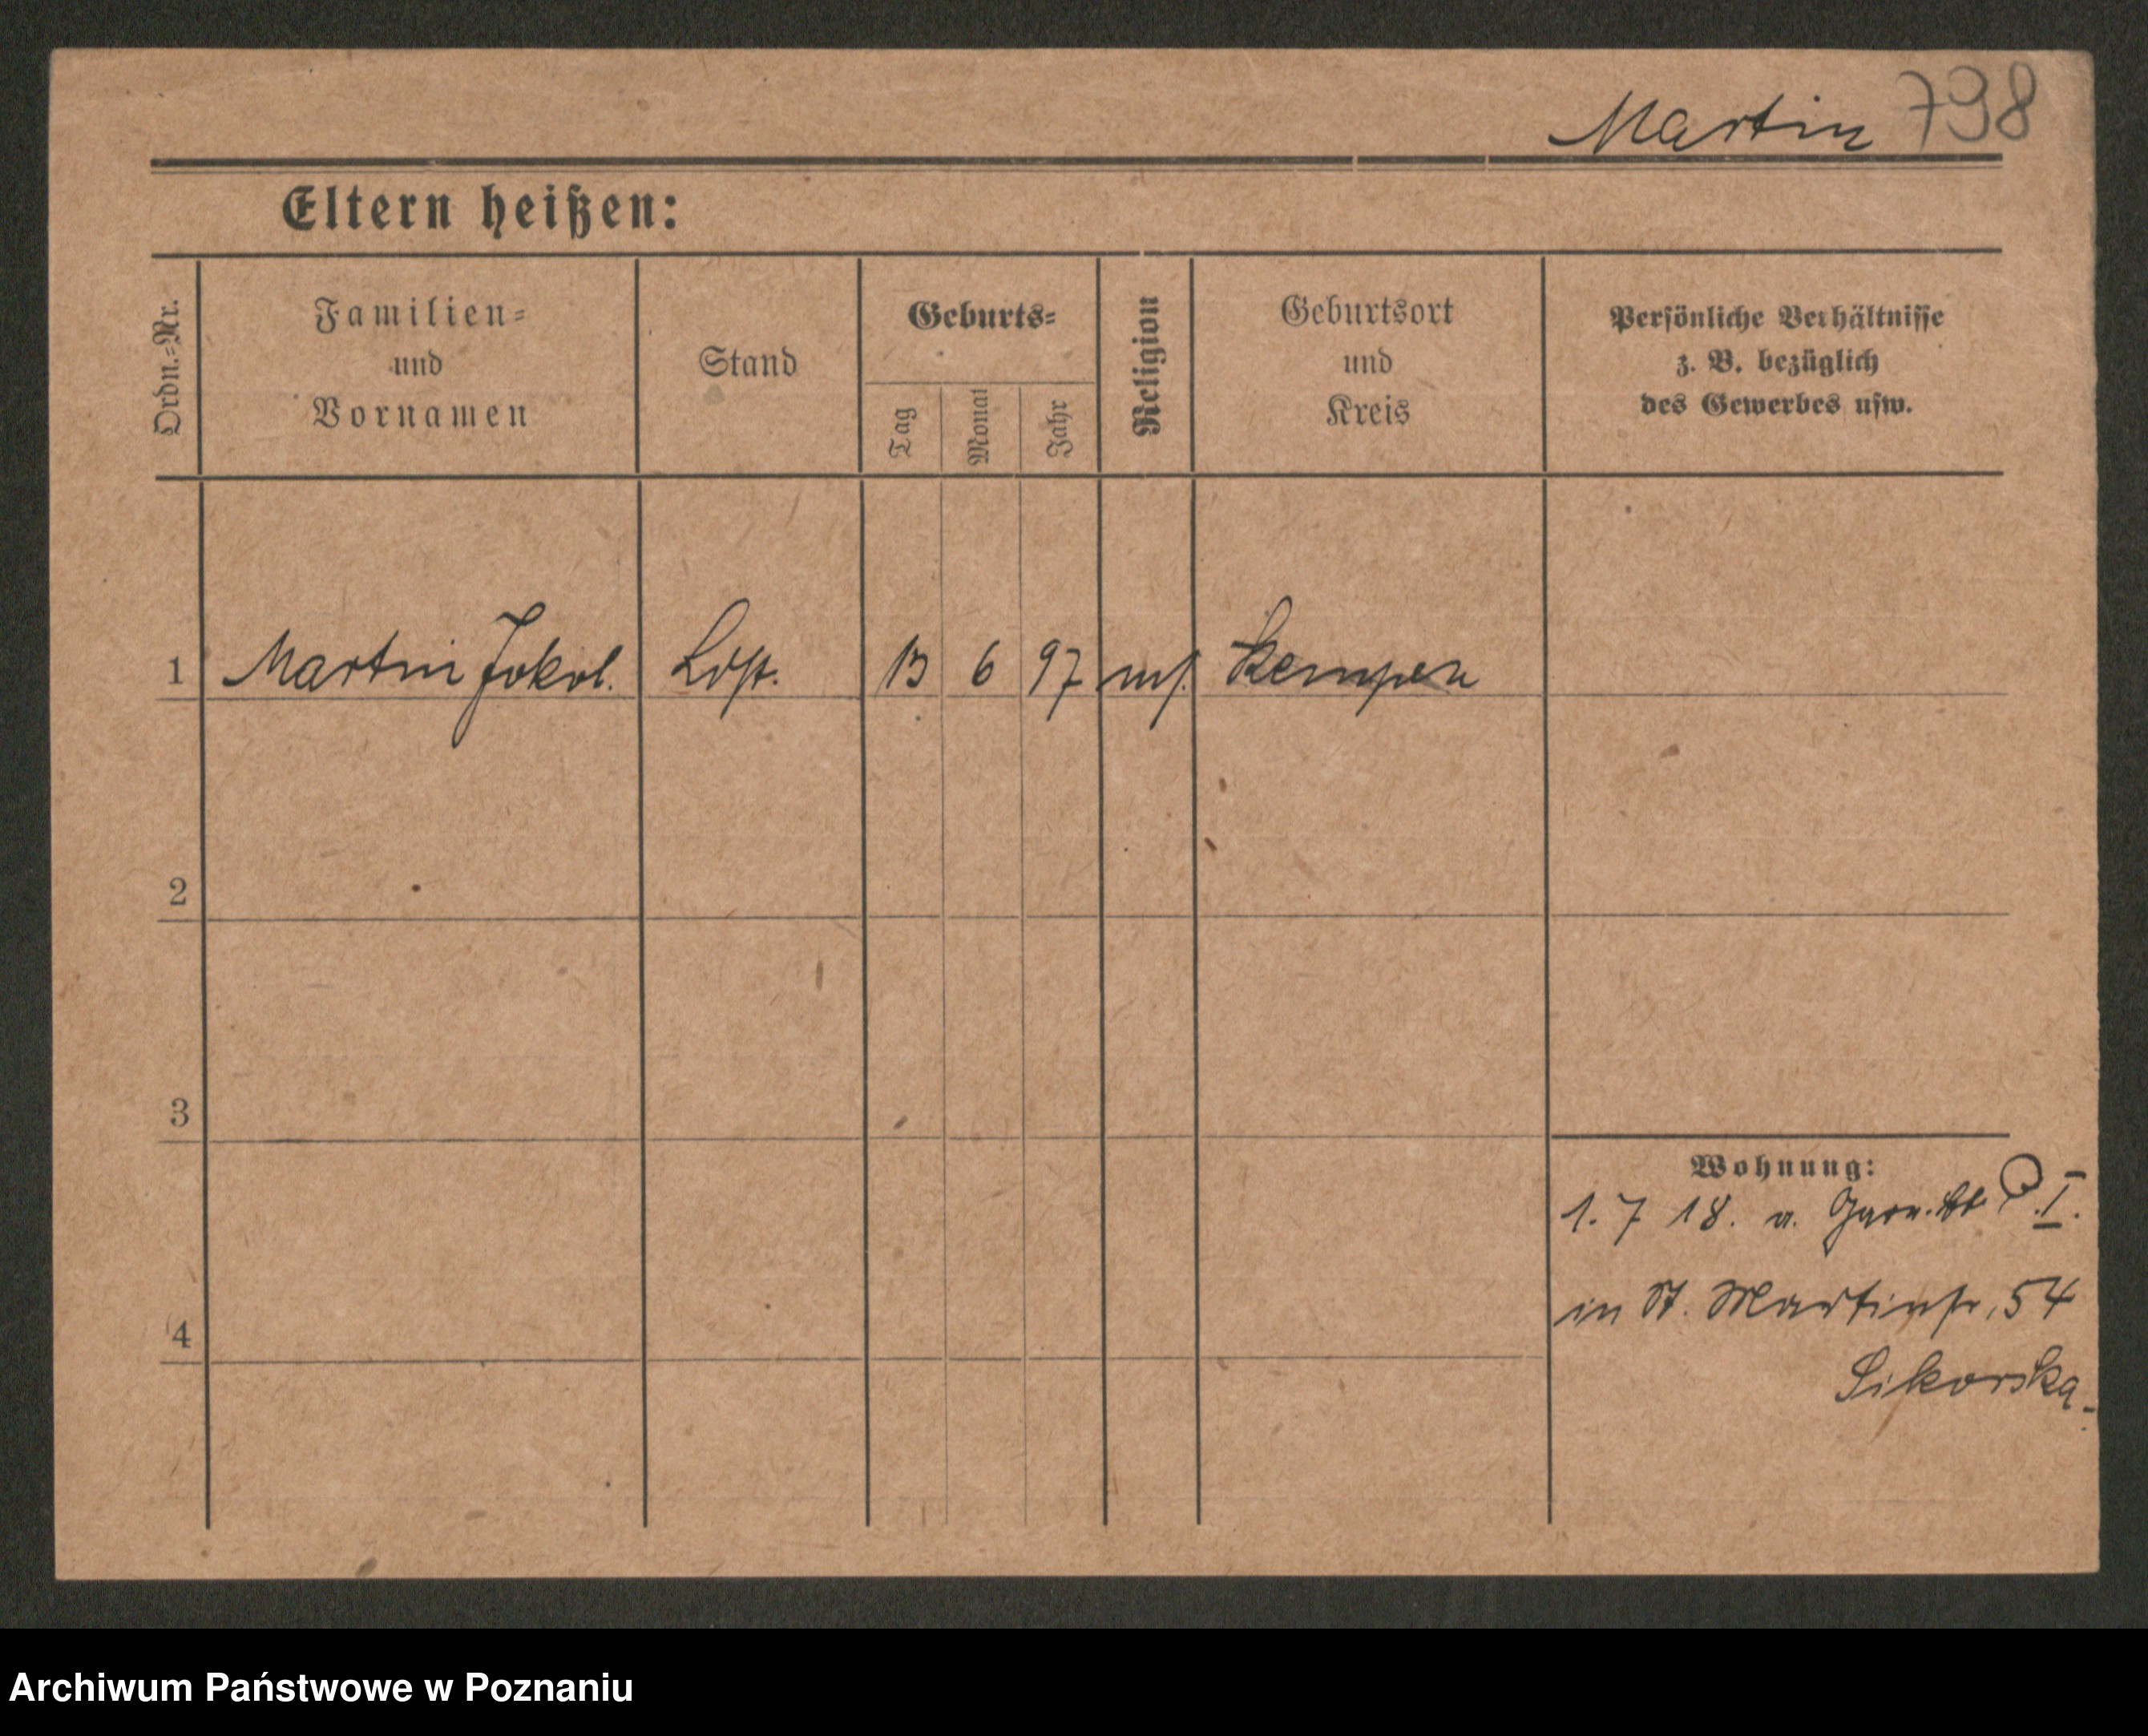 Martin 798
Eltern heißen:
Ordn.-Nr.
Familien-
und
Vornamen
Stand
Geburts-
Tag
Monat
Jahr
Religion
Geburtsort
und
Kreis
Persönliche Verhältnisse
z. B. bezüglich
des Gewerbes usw.
1 Martin Jokob. Ldst. 13 6 97 ms. Kempen
2
3
4
Wohnung:
1. 7 18. a. I.
in St. Martinstr. 54
Sikorska.
Archiwum Państwowe w Poznaniu